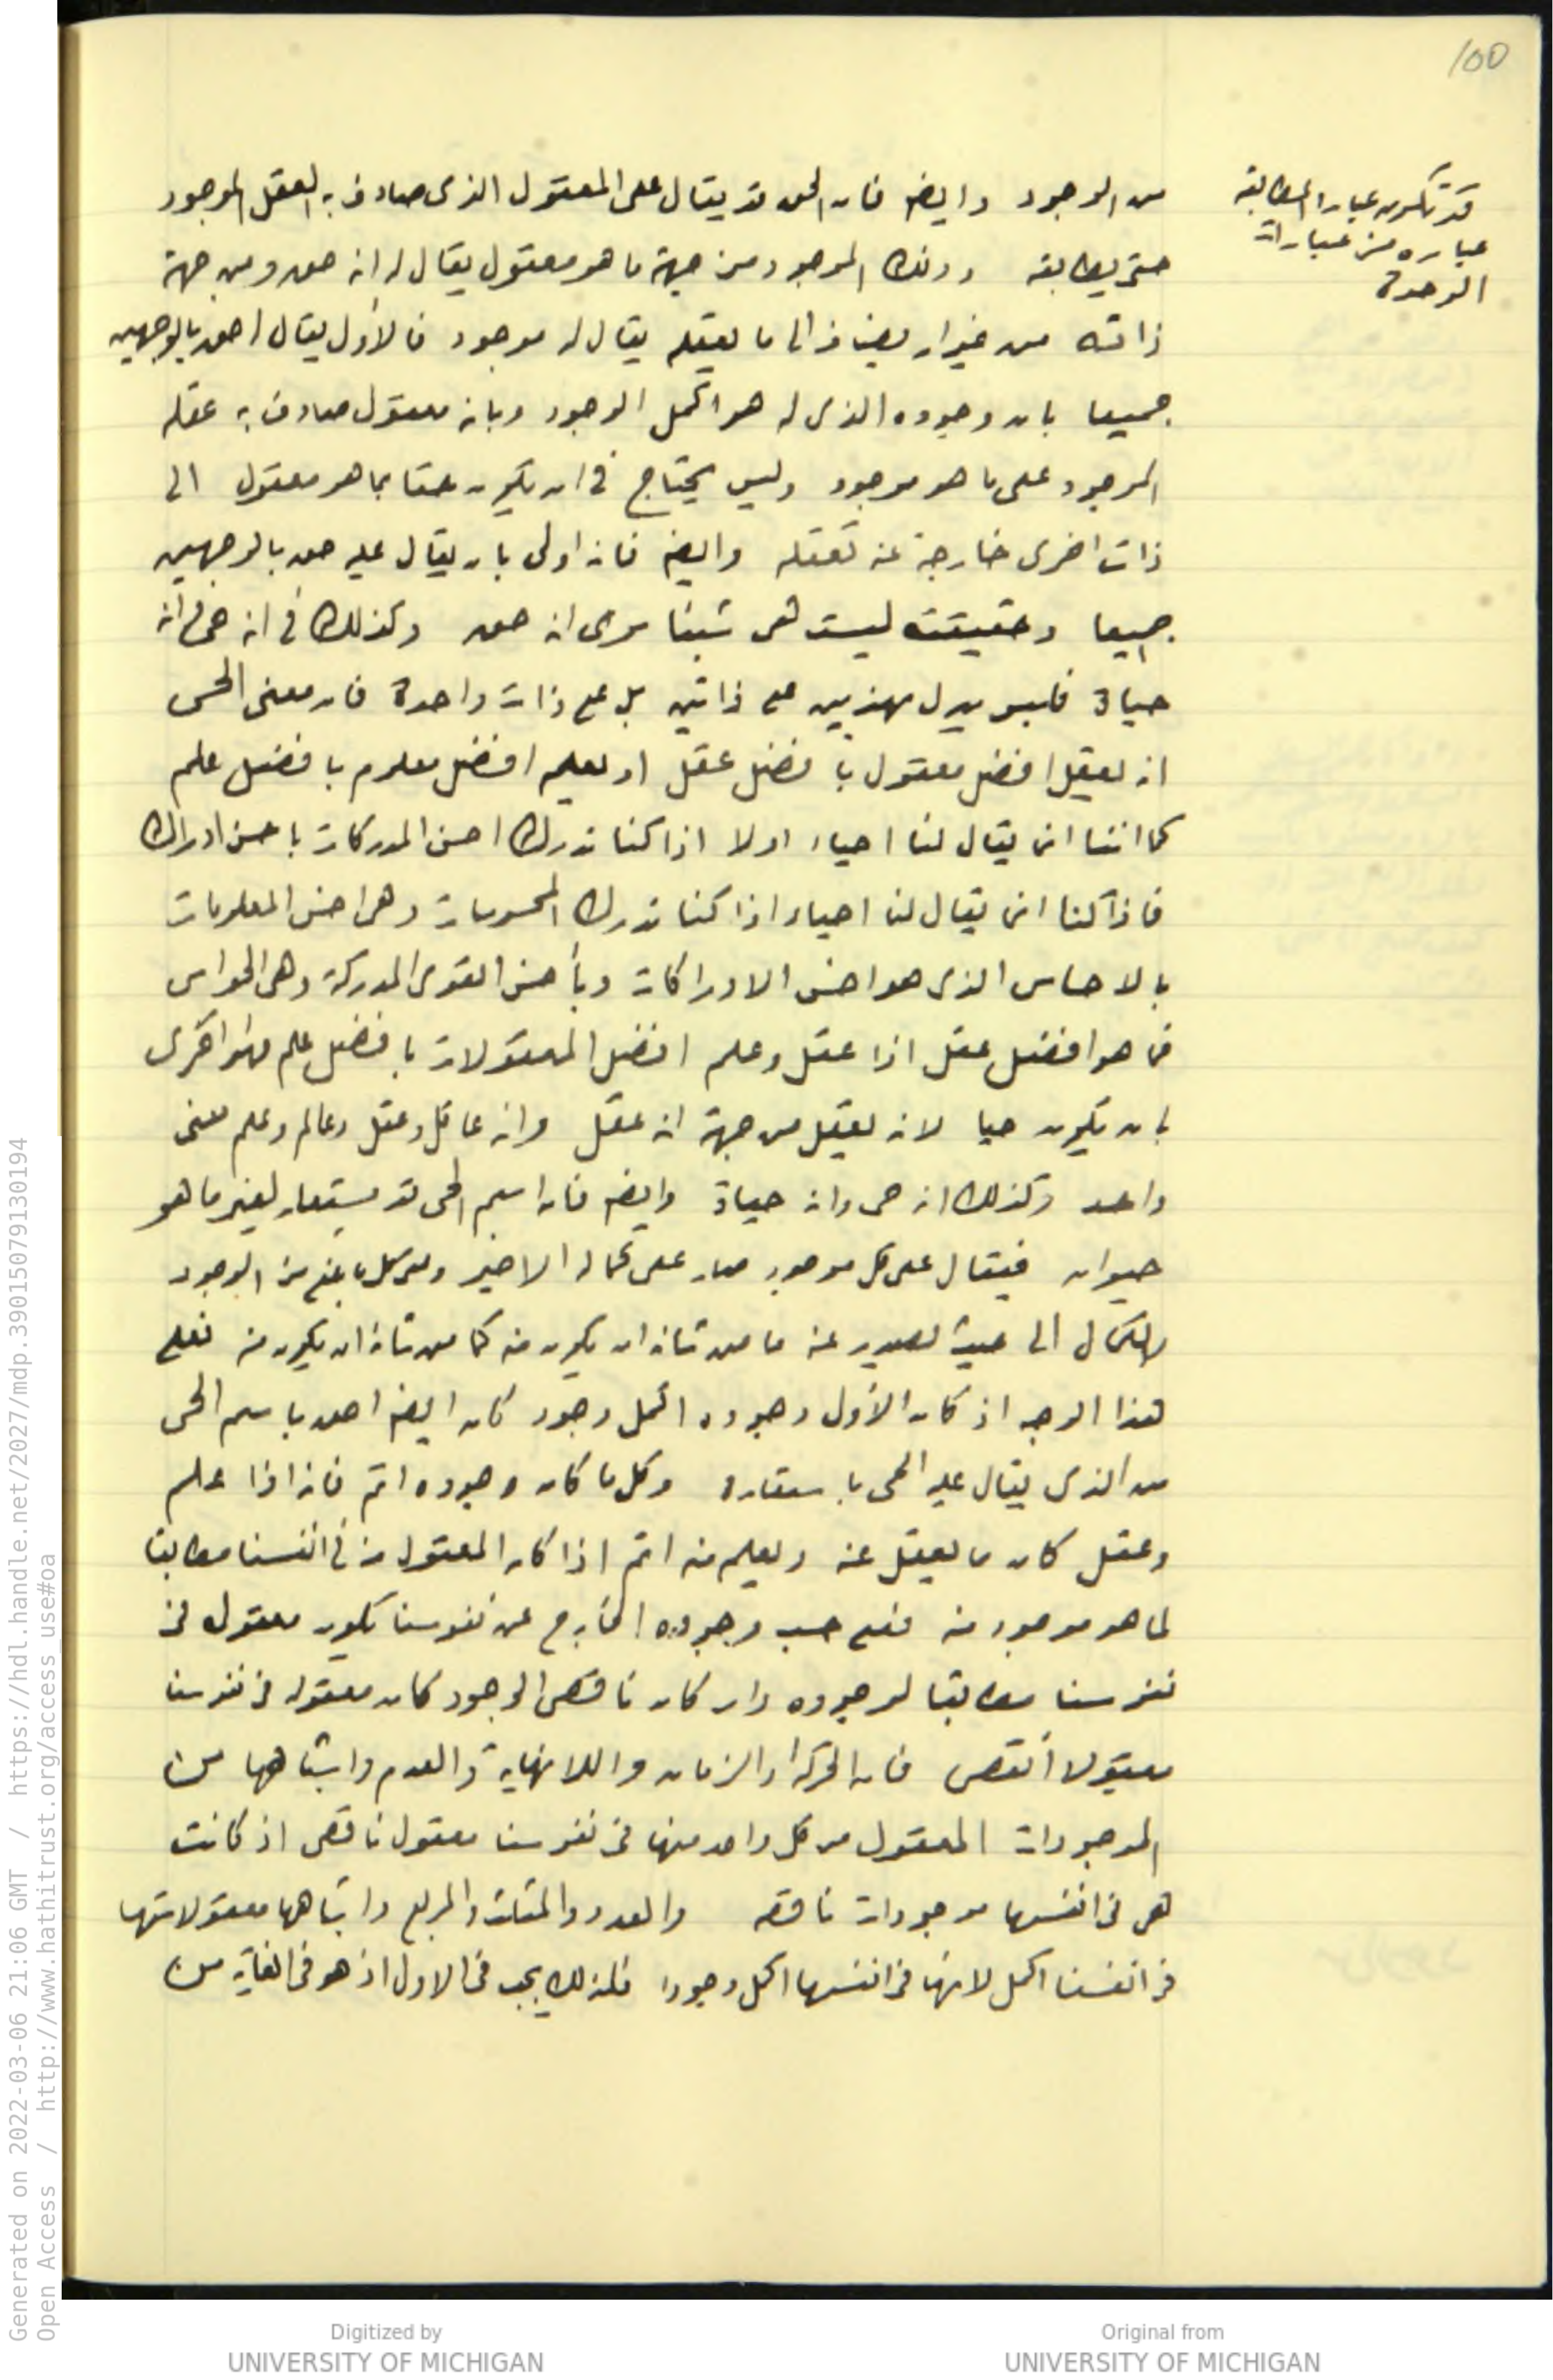 100
قد تكون عبارا المطابقة
عباره من عبارات
الوحدة
من الوجود وايضا فان الحق قد يقال على المعقول الذى صادف به العقل الموجود
حتى يطابقه وذلك الموجود من جهة ما هو معقول يقال له انه حق ومن جهة
ذاته من غير ان يضاف الى ما يعقله يقال له موجود فالأول يقال احق بالوجهين
جميعا بان وجوده الذى له هو اكمل الوجود وبانه معقول صادف به عقله
الموجود على ما هو موجود وليس يحتاج فى ان يكون حقا بما هو معقول الى
ذات اخرى خارجة عنه تعقله وايضا فانه اولى بان يقال عليه حق بالوجهين
جميعا وحقيقته ليست هى شيئا سوى انه حق وكذلك فى انه حى وانه
حياة فليس يدل بهذين على ذاتين بل على ذات واحدة فان معنى الحى
انه يعقل افضل معقول بأفضل عقل او يعلم افضل معلوم بافضل علم
كما اننا انما يقال لنا احياء اولا اذا كنا ندرك احسن المدركات باحسن ادراك
فاذا كنا انما يقال لنا احياء اذا كنا ندرك المحسوسات وهى احسن المعلومات
بالاحساس الذى هو احسن الادراكات وبأحسن القوى المدركة وهى الحواس
فما هو افضل عقل اذا عقل وعلم افضل المعقولات بافضل علم فهو احرى
بان يكون حيا لانه يعقل من جهة انه عقل وانه عاقل وعقل وعالم وعلم معنى
واحد وكذلك انه حى وانه حياة وايضا فان اسم الحى قد يستعار لغير ما هو
حيوان فيقال على كل موجود صار على كماله الاخير وعلى كل ما بلغ من الوجود
والكمال الى حيث يصدر عنه ما من شانه ان يكون منه كما من شانه ان يكون منه فعلى
هذا الوجه اذ كان الأول وجوده اكمل وجود كان ايضا احق باسم الحى
من الذى يقال عليه الحى باستعارة وكل ما كان وجوده اتم فانه اذا علم
وعقل كان ما يعقل عنه ويعلم منه اتم اذا كان المعقول منه فى انفسنا مطابقا
لما هو موجود منه فعلى حسب وجوده الخارج عن نفوسنا يكون معقوله فى
نفوسنا مطابقا لوجوده وان كان ناقص الوجود كان معقوله فى نفوسنا
معقولا أنقص فان الحركة والزمان واللانهاية والعدم واشباهها من
الموجودات المعقول من كل واحد منها فى نفوسنا معقول ناقص اذ كانت
هى فى انفسها موجودات ناقصه والعدد والمثلث والمربع واشباهها معقولاتها
فى انفسنا اكمل لانها فى انفسها اكمل وجودا فلذلك يجب فى الاول اذ هو فى الغاية من
Generated on 2022-03-06 21:06 GMT / https://hdl.handle.net/2027/mdp.39015079130194
Open Access / http://www.hathitrust.org/access_use#oa
Digitized by
UNIVERSITY OF MICHIGAN
Original from
UNIVERSITY OF MICHIGAN